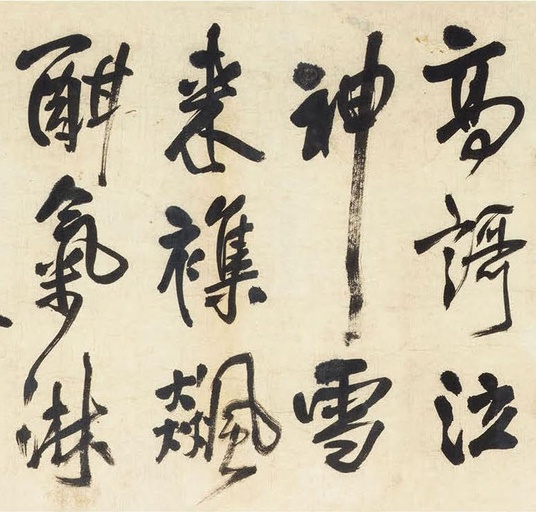 高謌泣
神雪
来襍飆
酣氣淋